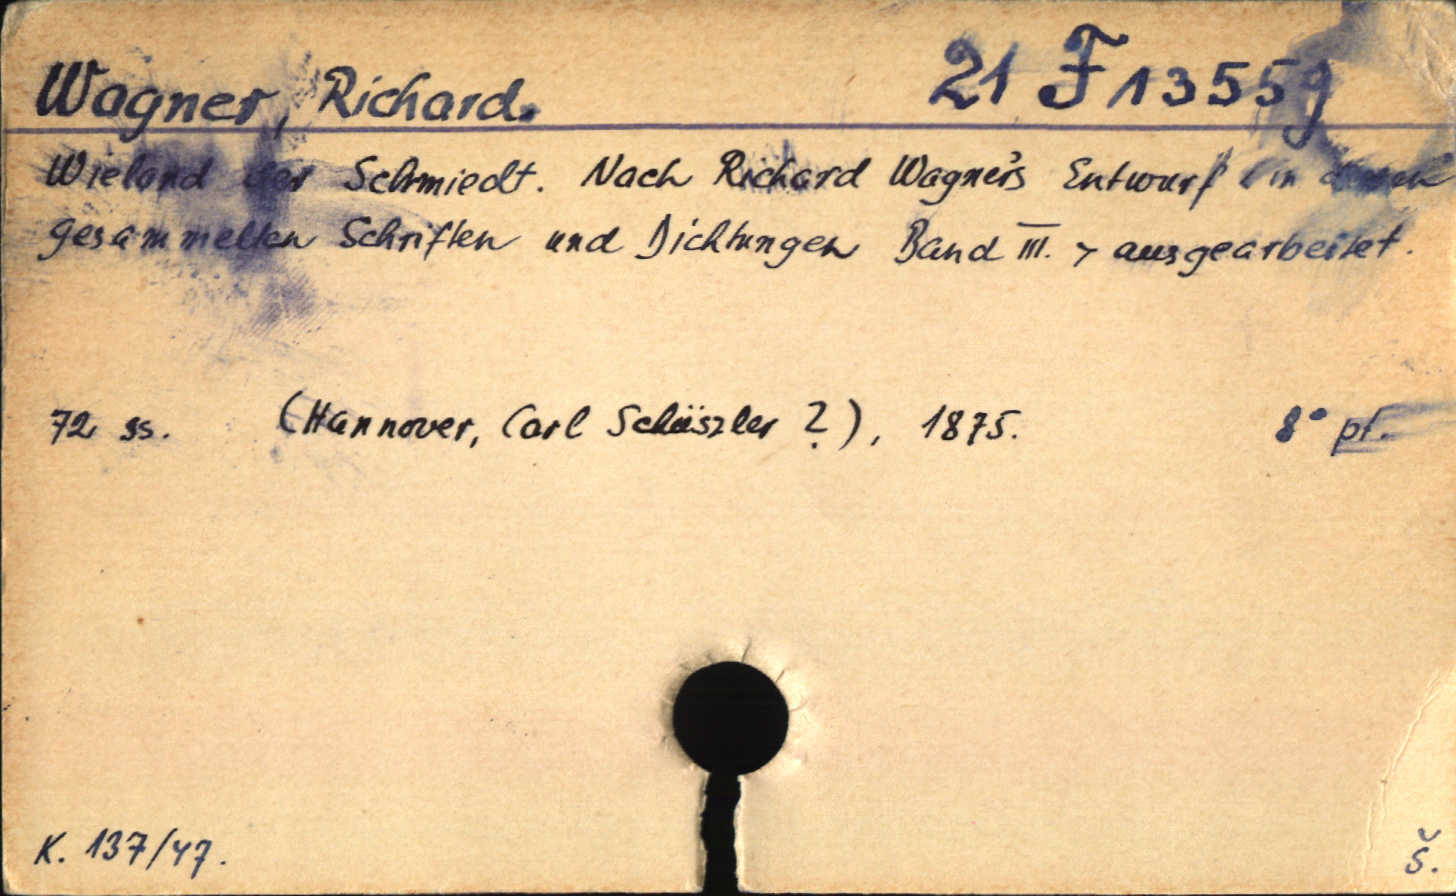 Wagner, Richard. 21 F 13559
Wieland der Schmiedt. Nach Richard Wagner's Entwurf in dessen
gesammelten Schriften und Dichtungen Band III. > ausgearbeitet.
72 ss. (Hannover, Carl Schüszler ?), 1875. 8° pf.
K. 137/47. Š.